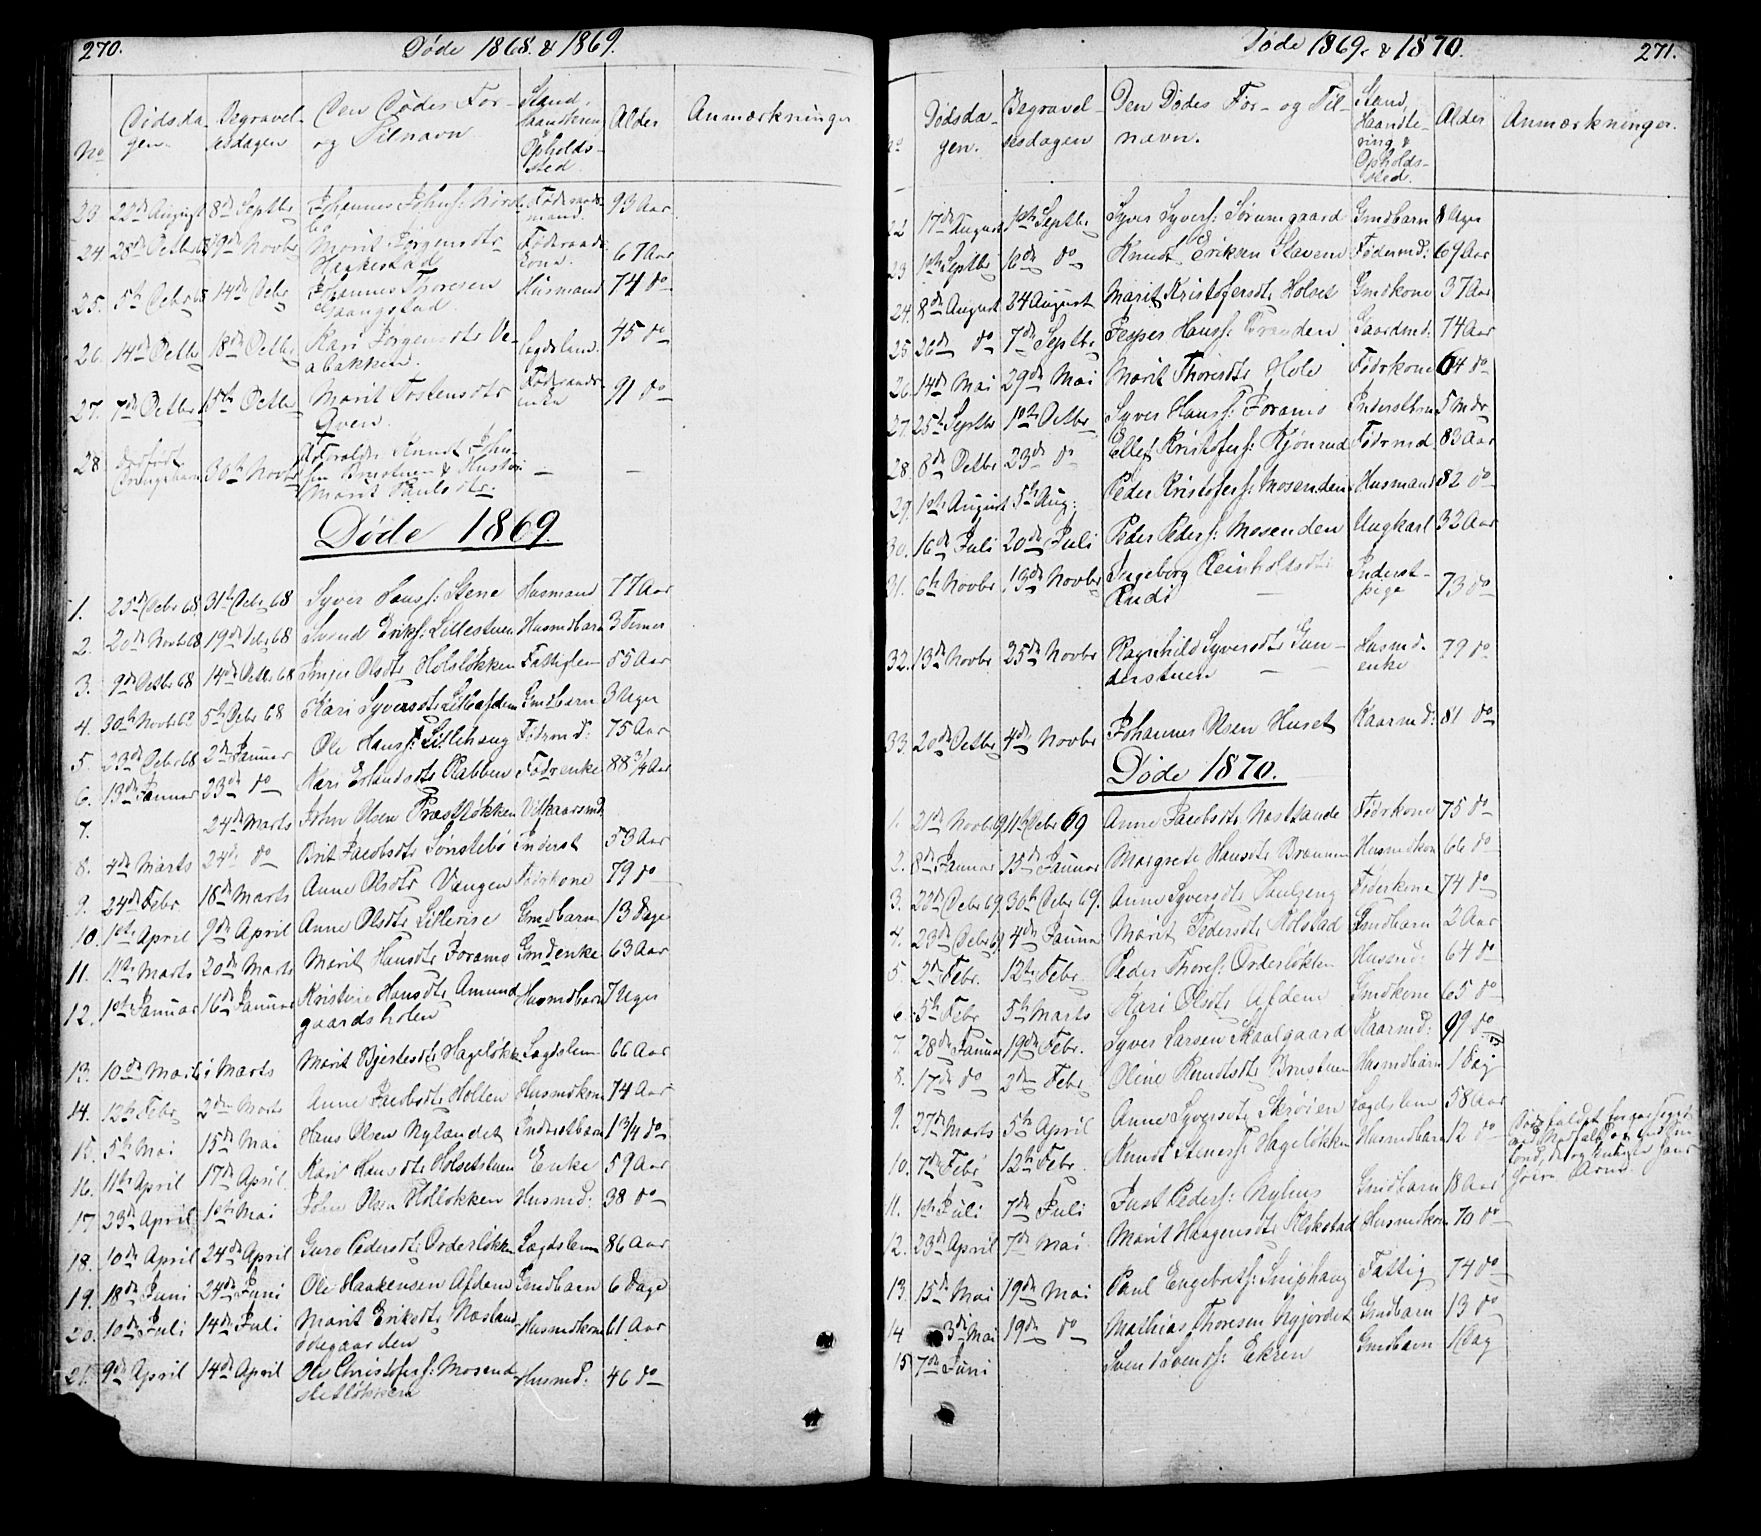 270. Døde 1868. & 1869.
No Dødsdagen. Begravelsesdagen Den Dødes For- og Tilnavn Stand, Haandtering & Opholdssted Alder Anmærkninger
23 22de August 8de Septbr Johannes Johns: Føderaadsmand. 93 Aar
24 28de Octbr 9de Novbr Marit Jørgensdtr Heskestad Føderaadskone. 67 Aar
25. 5te Decbr 14de Decbr Johannes Thoresen Gaangstad Husmand 74 do
26. 14de Octbr 18de Octbr Kari Jørgensdtr Lægdslem. 45 do
27. 7de Octbr 15de Octbr Marit Tostensdtr Qven. Føderaadsenke 91 do
28 dødfødt Drengebarn 30te Novbr Af Forældre Knud Johnsen Brustuen & Hustru Marit Paulsdtr. — —
Døde 1869.
1. 25de Decbr 68 31te Decbr 68 Syver Hansf: Stene Husmand 77 Aar
2. 20de Novb 68 19de Decbr 68 Svend Eriksf: Lillestuen Husmdbarn 3 Timer
3. 9de Octbr 68 14de Octbr 68 Inger Olsdtr Holsløkken Fattiglem 55 Aar
4. 30te Novbr 68 5te Decbr 68 Kari Syversdtr Gmdbarn 3 Uger
5. 23de Decbr 68 2de Januar Ole Hansf: Lillehaug Fødrmd: 75 Aar
6. 13de Januar 23de do Kari Erlandsdtr Rabben Fødrenke 88 3/4 Aar
7. 24de Marts John Olsen Præstløkken Vilkaarsmd.
8. 4de Marts 24de do Brit Jacobsdtr Sønstebø Inderst 53 Aar
9. 24de Febr 18de Marts Anne Olsdtr Vangen Fødrkone 79 do
10. 1ste April 9de April Anne Olsdtr Lillerise Gmdbarn 13 Dage
11. 11te Marts 20de Marts Marit Hansdtr Foramo Gmdenke 63 Aar
12. 1ste Januar 16de Januar Kristine Hansdtr Amundgaardsholen Husmdbarn 7 Uger
13. 10de Marts i Marts Marit Bjertesdtr Hageløkk: Lægdslem 66 Aar
14. 12te Febr 2den Marts Anne Jacobsdtr Holten Husmdkone 74 Aar
15. 5te Mai 15de Mai Hans Olsen Nylandet Inderstbarn 1 3/4 do
16. 11te April 17de April Kari Hansdtr Holsetstuen Enke 59 Aar
17. 23de April 1ste Mai John Olsen Holløkken Husmd: 38 do
18. 10de April 24de April Guro Pedersdtr Orderløkken Lægdslem 86 Aar
19. 18de Juni 24de Juni Ole Haakensen Afdem Gmdbarn 6 Dage
20. 10de Juli 14de Juli Marit Eriksdtr Næsland ødegaarden Husmdkone 61 Aar
21. 9de April 14de April Ole Christofersf: Mosendsletløkken Husmd: 46 do

Døde 1869. & 1870. 271.
No Dødsdagen. Begravelsesdagen Den Dødes For- og Tilnavn. Stand, Haandtering & Opholdssted. Alder Anmærkninger.
22 17de August 1ste Septbr Syver Syversf: Sørumgaard Gmdbarn 8 Uger
23 1ste Septbr 16de do Knud Eriksen Slaven Fødermd: 69 Aar
24. 8de August 24 August Marit Kristofersdtr Holset Gmdkone 37 Aar
25 26de do 7de Septbr Jesper Hansf: Branden Gaardmd. 74 Aar
26. 14de Mai 29de Mai Marit Thoresdtr Hole Fødrkone 64 do
27. 25de Septbr 1ste Octbr Syver Hansf: Foramo Inderstbarn 5 Mdr
28. 8de Octbr 23de do Ellef Kristofersf: Kjørrud Fødrmd. 83 Aar
29. 1ste August 5te Aug: Peder Kristofersf: Mosenden Husmand 82 do
30. 16de Juli 20de Juli Peder Pedersf: Mosenden Ungkarl 32 Aar
31. 6te Novbr 13de Novbr Ingeborg Reinholtsdtr Rudi Inderstpige 73 do
32. 13de Novbr 25de Novbr Ragnhild Syversdtr Gunderstuen Husmd. enke 79 do
33. 20de Octbr 4de Novbr Johannes Olsen Huset Kaarmd: 81 do
Døde 1870.
1. 21de Novb 69 11te Decbr 69 Anne Jacobsdtr Fødrkone 75 do
2. 8de Januar 15de Januar Margrete Hansdtr Brænnen Husmdkone 66 do
3. 22de Decbr 69. 30te Decbr 69. Anne Syversdtr Føderkone 74 do
4. 23de Decbr 69 4de Januar Marit Pedersdtr Kolstad Gmdbarn 2 Aar
5. 2de Febr. 12te Febr Peder Thoresf: Orderløkken Husmd: 64 do
6 5te Febr 5te Marts Kari Olsdtr Afdem Gmdkone 65 do
7. 28de Januar 19de Febr. Syver Larsen Skaalgaard Kaarmd: 99 do
8. 17de do 2den Febr Oline Knudtsdtr Brustuen Husmdbarn 1 Dag
9. 27de Marts 5te April Anne Syversdtr Skrøien Lægdslem 58 Aar
10. 7de Febr 12te Febr. Knudt Steners: Hageløkken Husmdbarn 12 do
11. 1ste Juli 7de Juli Just Pedersf: Nyhus Gmdbarn 18 Aar
12. 23de April 7de Mai Marit Haagensdtr Slikstad Husmdkone 70 do
13. 15de Mai 19de Mai Paul Engebretsf: Sniphaug Fattig 74 do
14 3die Mai 19de do Mathias Thoresen Nyjordet Gmdbarn 13 do
15 7de Juni Svend Svendsf: Ekren Gmdbarn 1 Dag